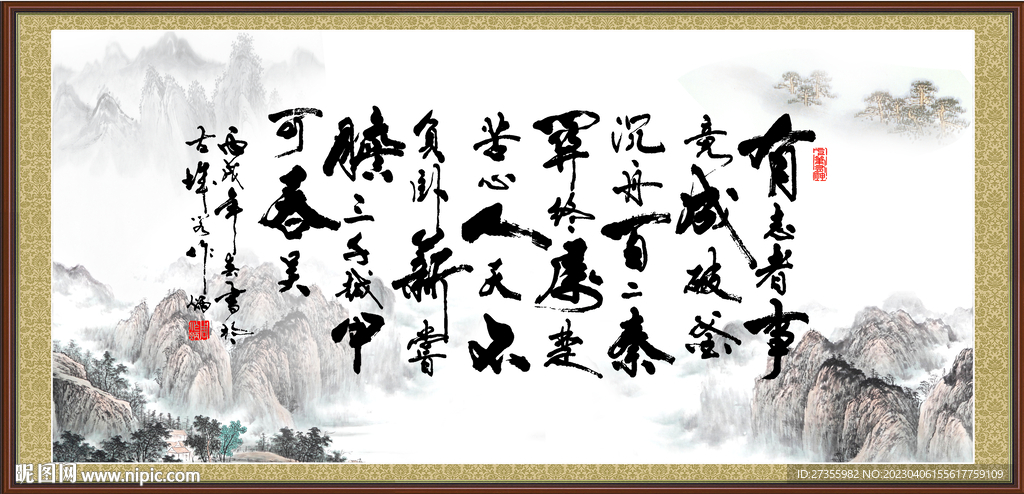 有志者事
竟成破釜
沉舟百二秦
関终属楚
苦心人天不
负卧薪嘗
膽三千越甲
可吞吴
丙戌年春書於
古城
昵图网 www.nipic.com
ID:27355982 NO:20230406155617759109